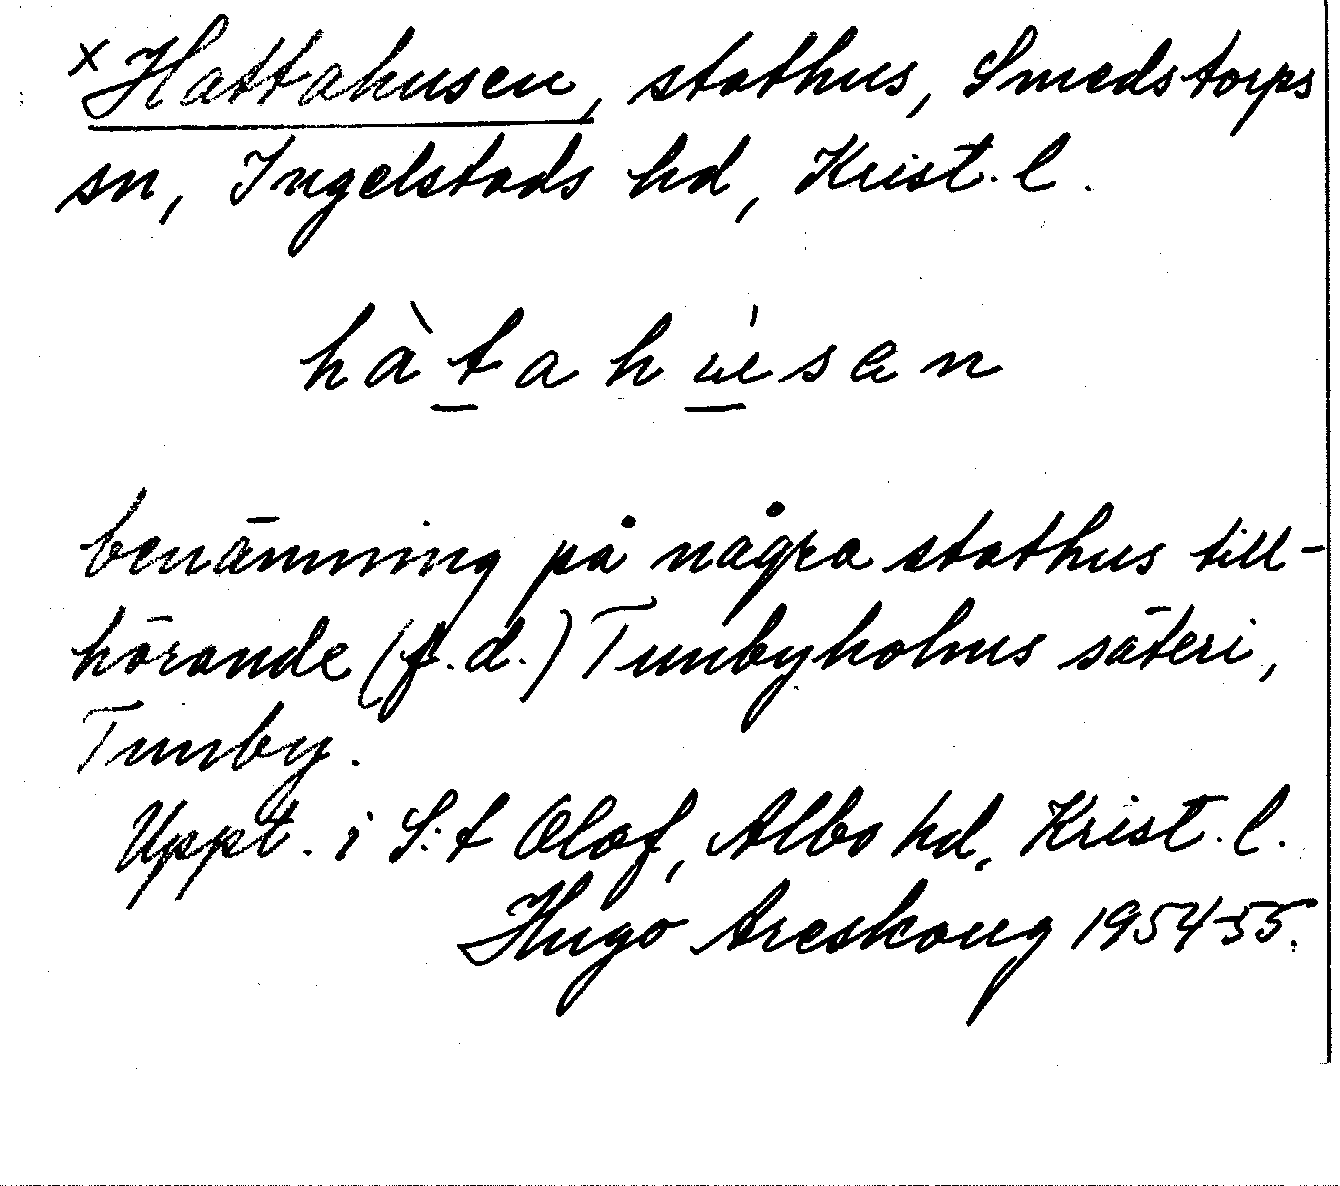 x Hattahusen, stathus, Smedstorps
sn, Ingelstads hd, Krist. l.
benämning på några stathus till-
hörande (f.d.) Tunbyholms säteri,
Tunby.
Uppt. i S:t Olof, Albo hd, Krist. l.
Hugo Areskoug 1954-55.